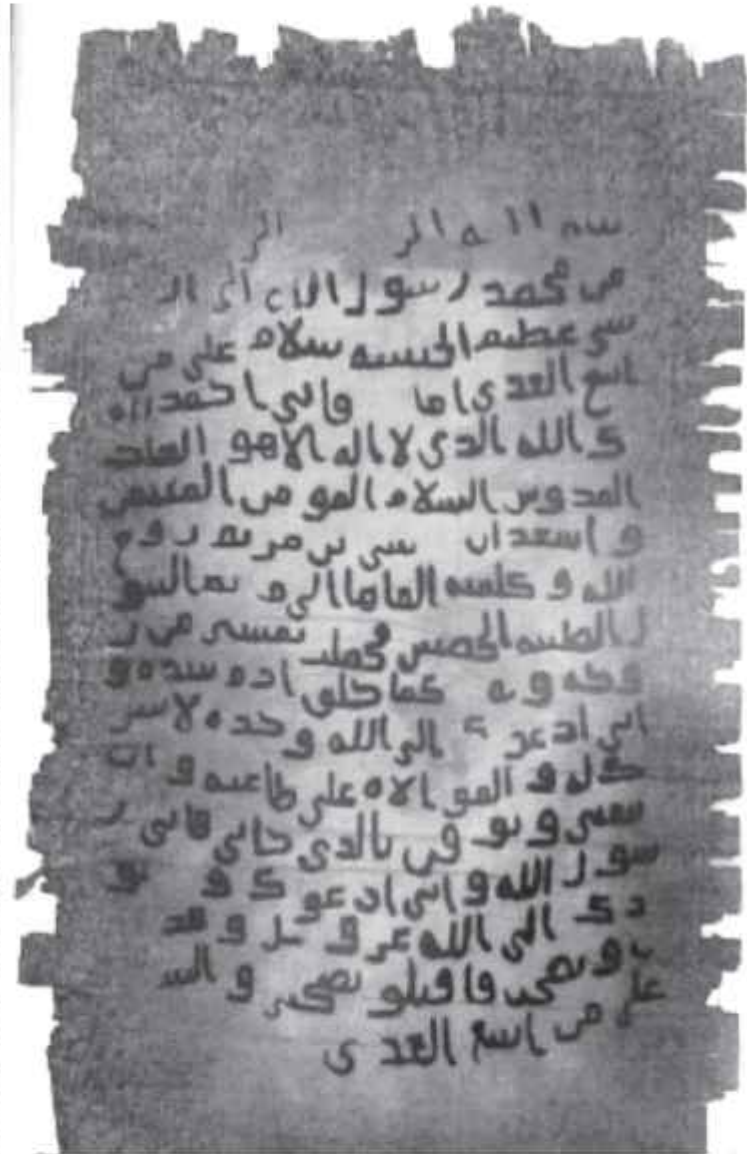 سم الله الر الر
من محمد رسول الله الى ال
شي عظيم الحبشة سلام على من
اتبع الهدى اما فاني احمد ال
ك الله الذي لا اله الا هو الملك
القدوس السلام المومن المهيمن
و اشهد ان سى بن مريم روح
الله و كلمته القاها الى مر يم البتو
ل الطيبة الحصينة فحملت بعيسى من ر
وحه و ه كما خلق ادم بيده و
اني ادعوك الى الله وحده لا شر
ك له و الموالاة على طاعته و ان
تتبعني و تو قن بالذي جاني فاني ر
سول الله و اني ادعوك و نو
دك الى الله عز و جل و قد
ت و نصحت فاقبلو نصحي و الس
على من اتبع الهدى